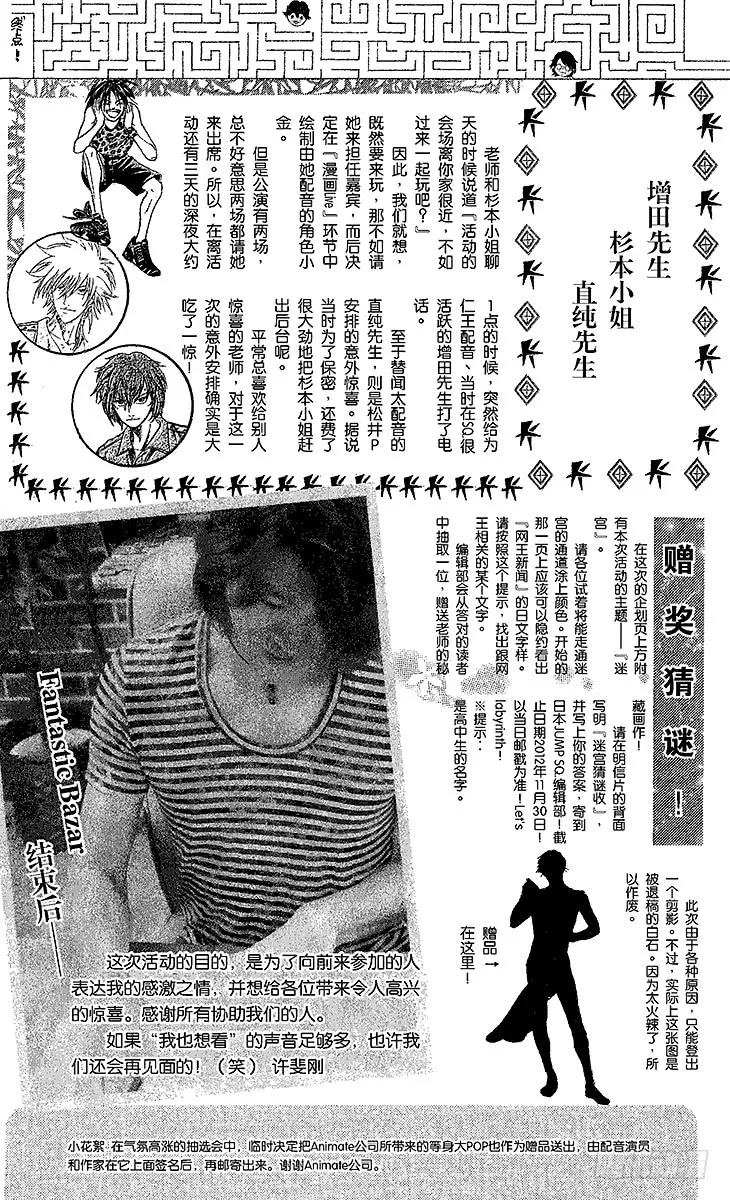 终点！
增田先生
杉本小姐
直纯先生
老师和杉本小姐聊
天的时候说道『活动的
会场离你家很近，不如
过来一起玩吧？』
因此，我们就想，
既然要来玩，那不如请
她来担任嘉宾，而后决
定在『漫画live』环节中
绘制由她配音的角色小
金。
但是公演有两场，
总不好意思两场都请她
来出席。所以，在离活
动还有三天的深夜大约
1点的时候，突然给为
仁王配音、当时在SQ.很
活跃的增田先生打了电
话。
至于替闻太配音的
直纯先生，则是松井P
安排的意外惊喜。据说
当时为了保密，还费了
很大劲地把杉本小姐赶
出后台呢。
平常总喜欢给别人
惊喜的老师，对于这一
次的意外安排确实是大
吃了一惊！
赠奖猜谜！
在这次的企划页上方附
有本次活动的主题——『迷
宫』。
请各位试着将能走通迷
宫的通道涂上颜色。开始的
那一页上应该可以隐约看出
『网王新闻』的日文字样。
请按照这个提示，找出跟网
王相关的某个文字。
编辑部会从答对的读者
中抽取一位，赠送老师的秘
藏画作！
请在明信片的背面
写明『迷宫猜谜收』，
并写上你的答案，寄到
日本JUMP SQ.编辑部！截
止日期2012年11月30日！
以当日邮戳为准！Let's
labyrinth!
※提示：
是高中生的名字。
此次由于各种原因，只能登出
一个剪影。不过，实际上这张图是
被退稿的白石。因为太火辣了，所
以作废。
赠品→
在这里！
Fantastic Bazar
结束后——
这次活动的目的，是为了向前来参加的人
表达我的感激之情，并想给各位带来令人高兴
的惊喜。感谢所有协助我们的人。
如果“我也想看”的声音足够多，也许我
们还会再见面的！（笑） 许斐刚
小花絮 在气氛高涨的抽选会中，临时决定把Animate公司所带来的等身大POP也作为赠品送出，由配音演员
和作家在它上面签名后，再邮寄出来。谢谢Animate公司。